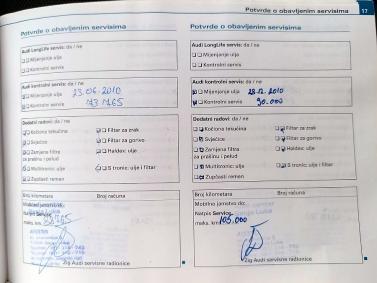 Potvrde o obavljenim servisima
17
Potvrde o obavljenim servisima
Audi LongLife servis: da / ne
Mijenjanje ulja
Kontrolni servis
Audi kontrolni servis: da / ne
Mijenjanje ulja 23.06.2010
Kontrolni servis 73765
Dodatni radovi: da / ne
Kočiona tekućina
Filter za zrak
Svjećice
Filter za gorivo
Zamjena filtra
za prašinu i pelud
Haldex: ulje
Multitronic: ulje
S tronic: ulje i filter
Zupčasti remen
Broj kilometara
Broj računa
Mobilno jamstvo do:
Natpis Service
maks. km
Žig Audi servisne radionice
Potvrde o obavljenim servisima
Audi LongLife servis: da / ne
Mijenjanje ulja
Kontrolni servis
Audi kontrolni servis: da / ne
Mijenjanje ulja 28.12.2010
Kontrolni servis 90.000
Dodatni radovi: da / ne
Kočiona tekućina
Filter za zrak
Svjećice
Filter za gorivo
Zamjena filtra
za prašinu i pelud
Haldex: ulje
Multitronic: ulje
S tronic: ulje i filter
Zupčasti remen
Broj kilometara
Broj računa
Mobilno jamstvo do:
Natpis Service
maks. km 105.000
Žig Audi servisne radionice